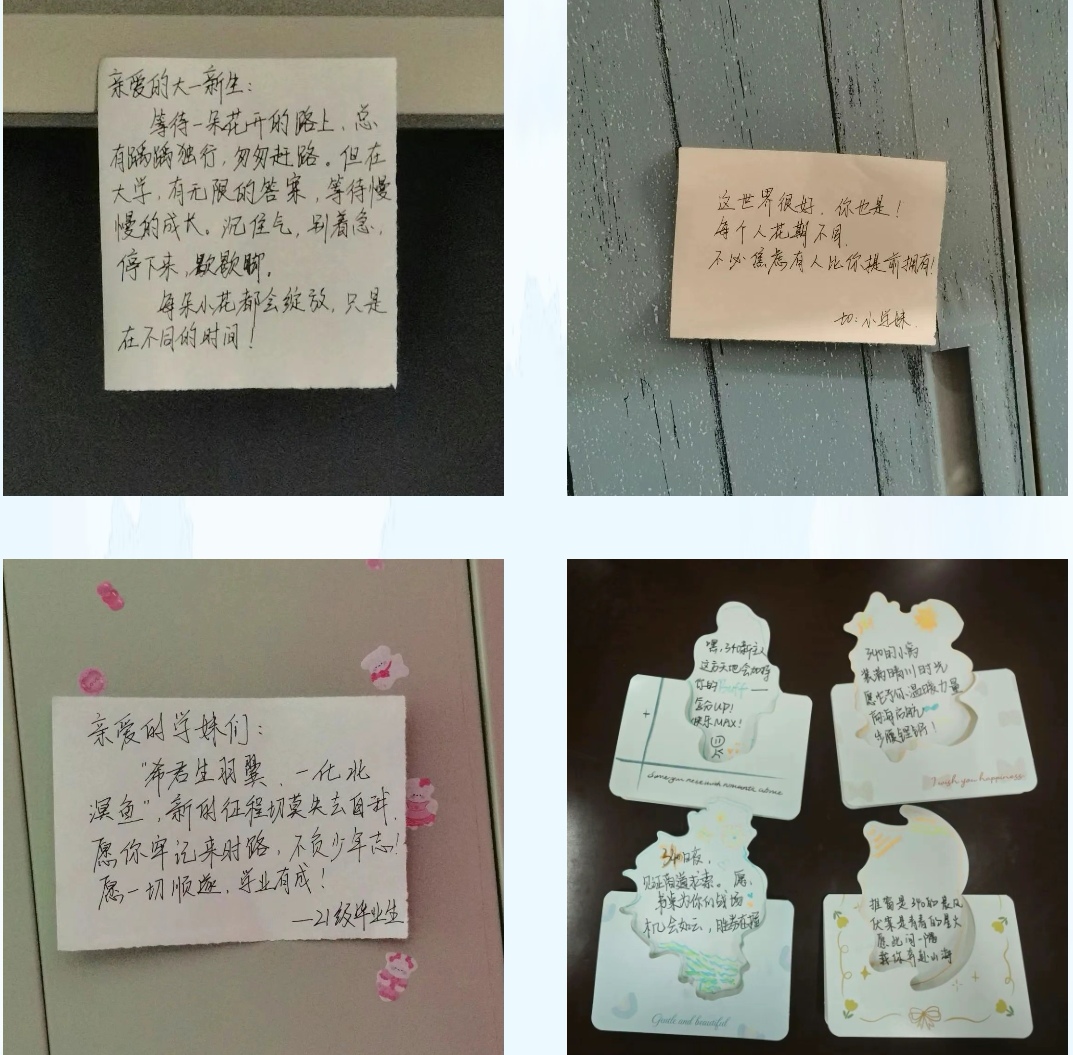 亲爱的大一新生：
等待一朵花开的路上，总
有踽踽独行，匆匆赶路。但在
大学，有无限的答案，等待慢
慢的成长。沉住气，别着急，
停下来，歇歇脚。
每朵小花都会绽放，只是
在不同的时间！
这世界很好，你也是！
每个人花期不同，
不必焦虑有人比你提前拥有！
切：小学妹
亲爱的学妹们：
“希君生羽翼，一化北
溟鱼”，新的征程切莫失去自我，
愿你牢记来时路，不负少年志！
愿一切顺遂，学业有成！
—21级毕业生
嘿，340新主人
这方天地会加持
你的Buff——
学分UP！
快乐MAX！
340的小窝
装满晴川时光
愿它予你温暖力量
向海而航
步履铿锵！
I wish you happiness.
340日夜，
见证问道求索。愿，
书桌为你们战场
机会如云，胜券在握
Gentle and beautiful
推窗是340的晨风
伏案是青春的星火
愿此间一隅
載你奔赴山海